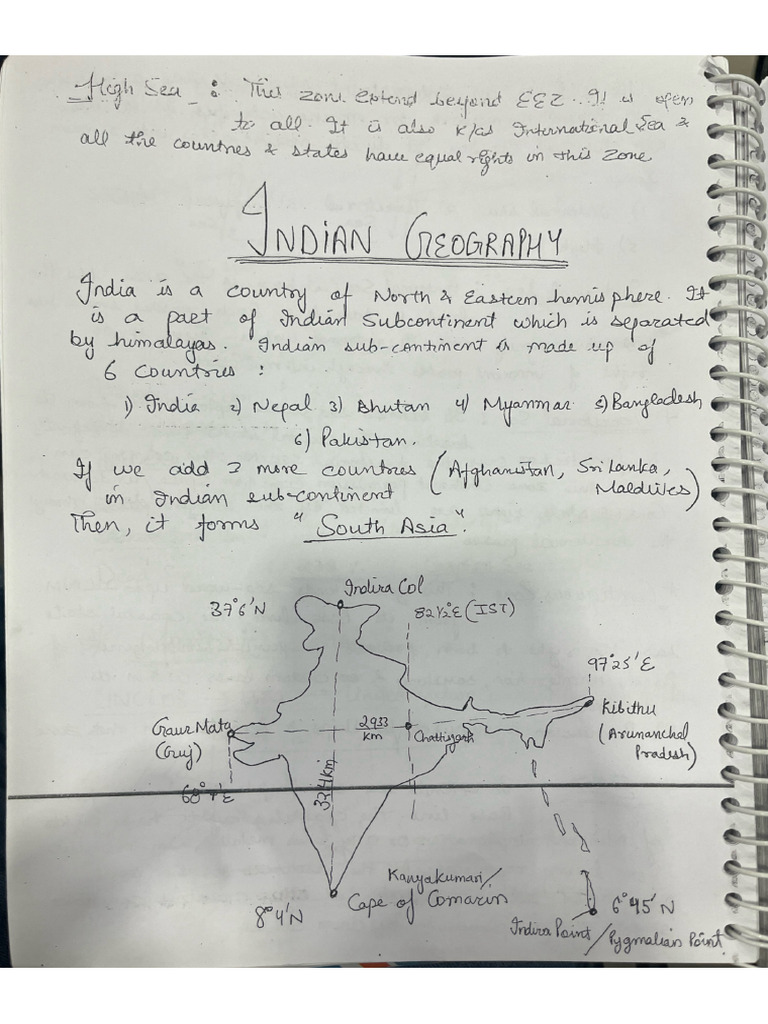 High Sea : This zone extend beyond EEZ. It is open
to all. It is also k/as International Sea &
all the countries & states have equal rights in this zone
INDIAN GEOGRAPHY
India is a country of North & Eastern hemisphere. It
is a part of Indian Subcontinent which is separated
by himalayas. Indian sub-continent is made up of
6 countries :
1) India 2) Nepal 3) Bhutan 4) Myanmar 5) Bangladesh
6) Pakistan.
If we add 3 more countries (Afghanistan, Sri Lanka,
Maldives)
in Indian sub-continent
Then, it forms "South Asia".
Indira Col
37°6'N
82½°E (IST)
97°25'E
Kibithu
(Arunanchal
Pradesh)
Gaur Mata
(Guj)
2933
km
Chattisgarh
3214km
68°7'E
Kanyakumari/
Cape of Comarin
8°4'N
6°45'N
Indira Point
/Pygmalian Point